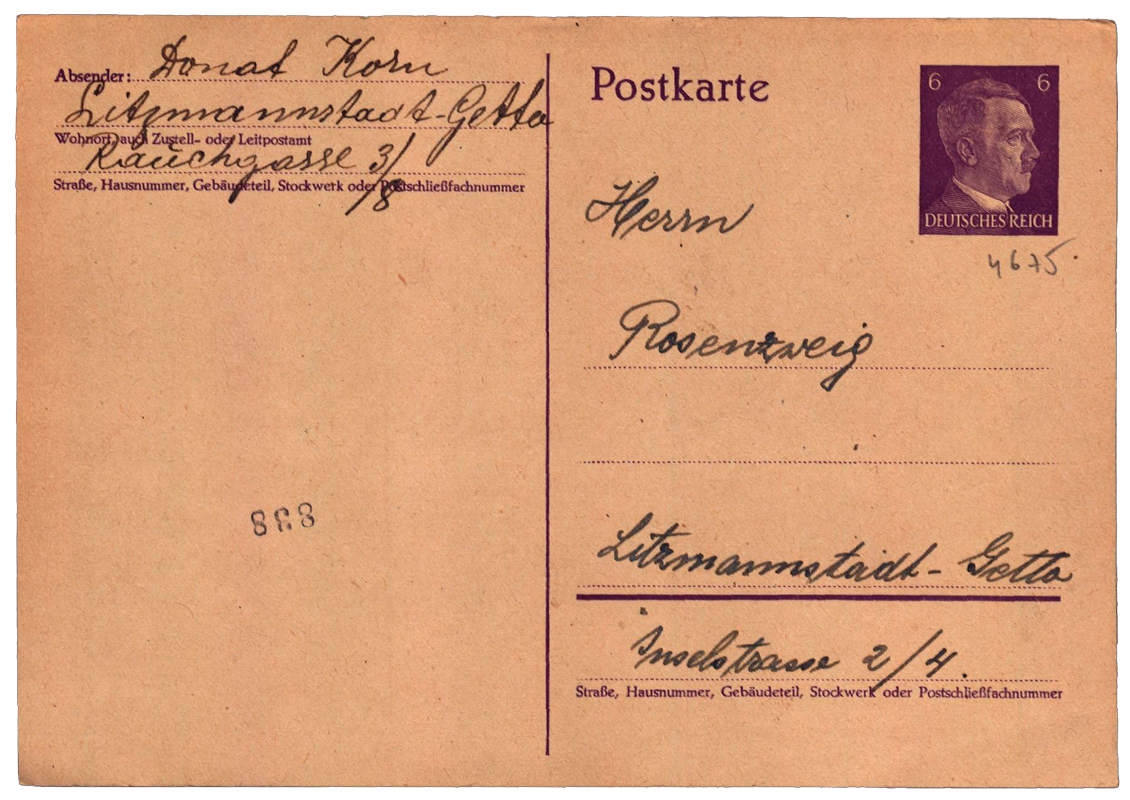 Absender: Donat Korn
Litzmannstadt-Getto
Wohnort, auch Zustell- oder Leitpostamt
Rauchgasse 3/8
Straße, Hausnummer, Gebäudeteil, Stockwerk oder Postschließfachnummer
888
Postkarte
6 6
DEUTSCHES REICH
4675
Herrn
Rosenzweig
Litzmannstadt- Getto
Inselstrasse 2/4.
Straße, Hausnummer, Gebäudeteil, Stockwerk oder Postschließfachnummer